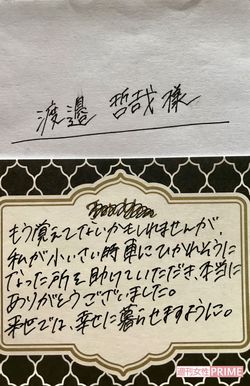 渡邉 哲哉 様
もう覚えてないかもしれませんが、
私が小さい時車にひかれそうに
なった所を助けていただき本当に
ありがとうございました。
来世では、幸せに暮らせますように。
週刊女性PRIME